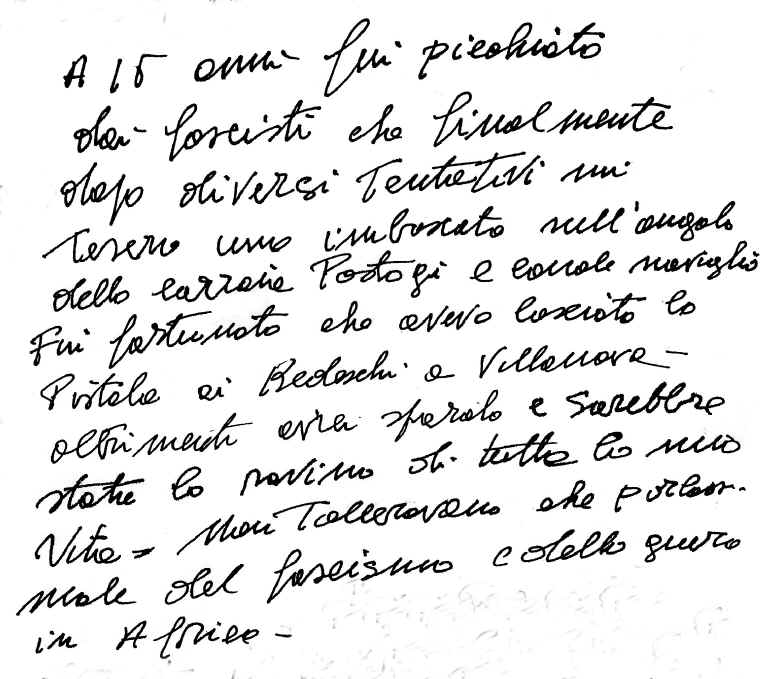 A 15 anni fui picchiato
dai fascisti che finalmente
dopo diversi Tentativi mi
Tesero uno imboscata sull'angolo
della carraia Postogi e canale naviglio
Fui fortunato che avevo lasciato la
Pistola ai Bedeschi a Villanova -
altrimenti avrei sparato e sarebbre
stata la rovina di tutta la mia
Vita = Non Tolleravano che parlassi
male del fascismo e della guerra
in Africa -